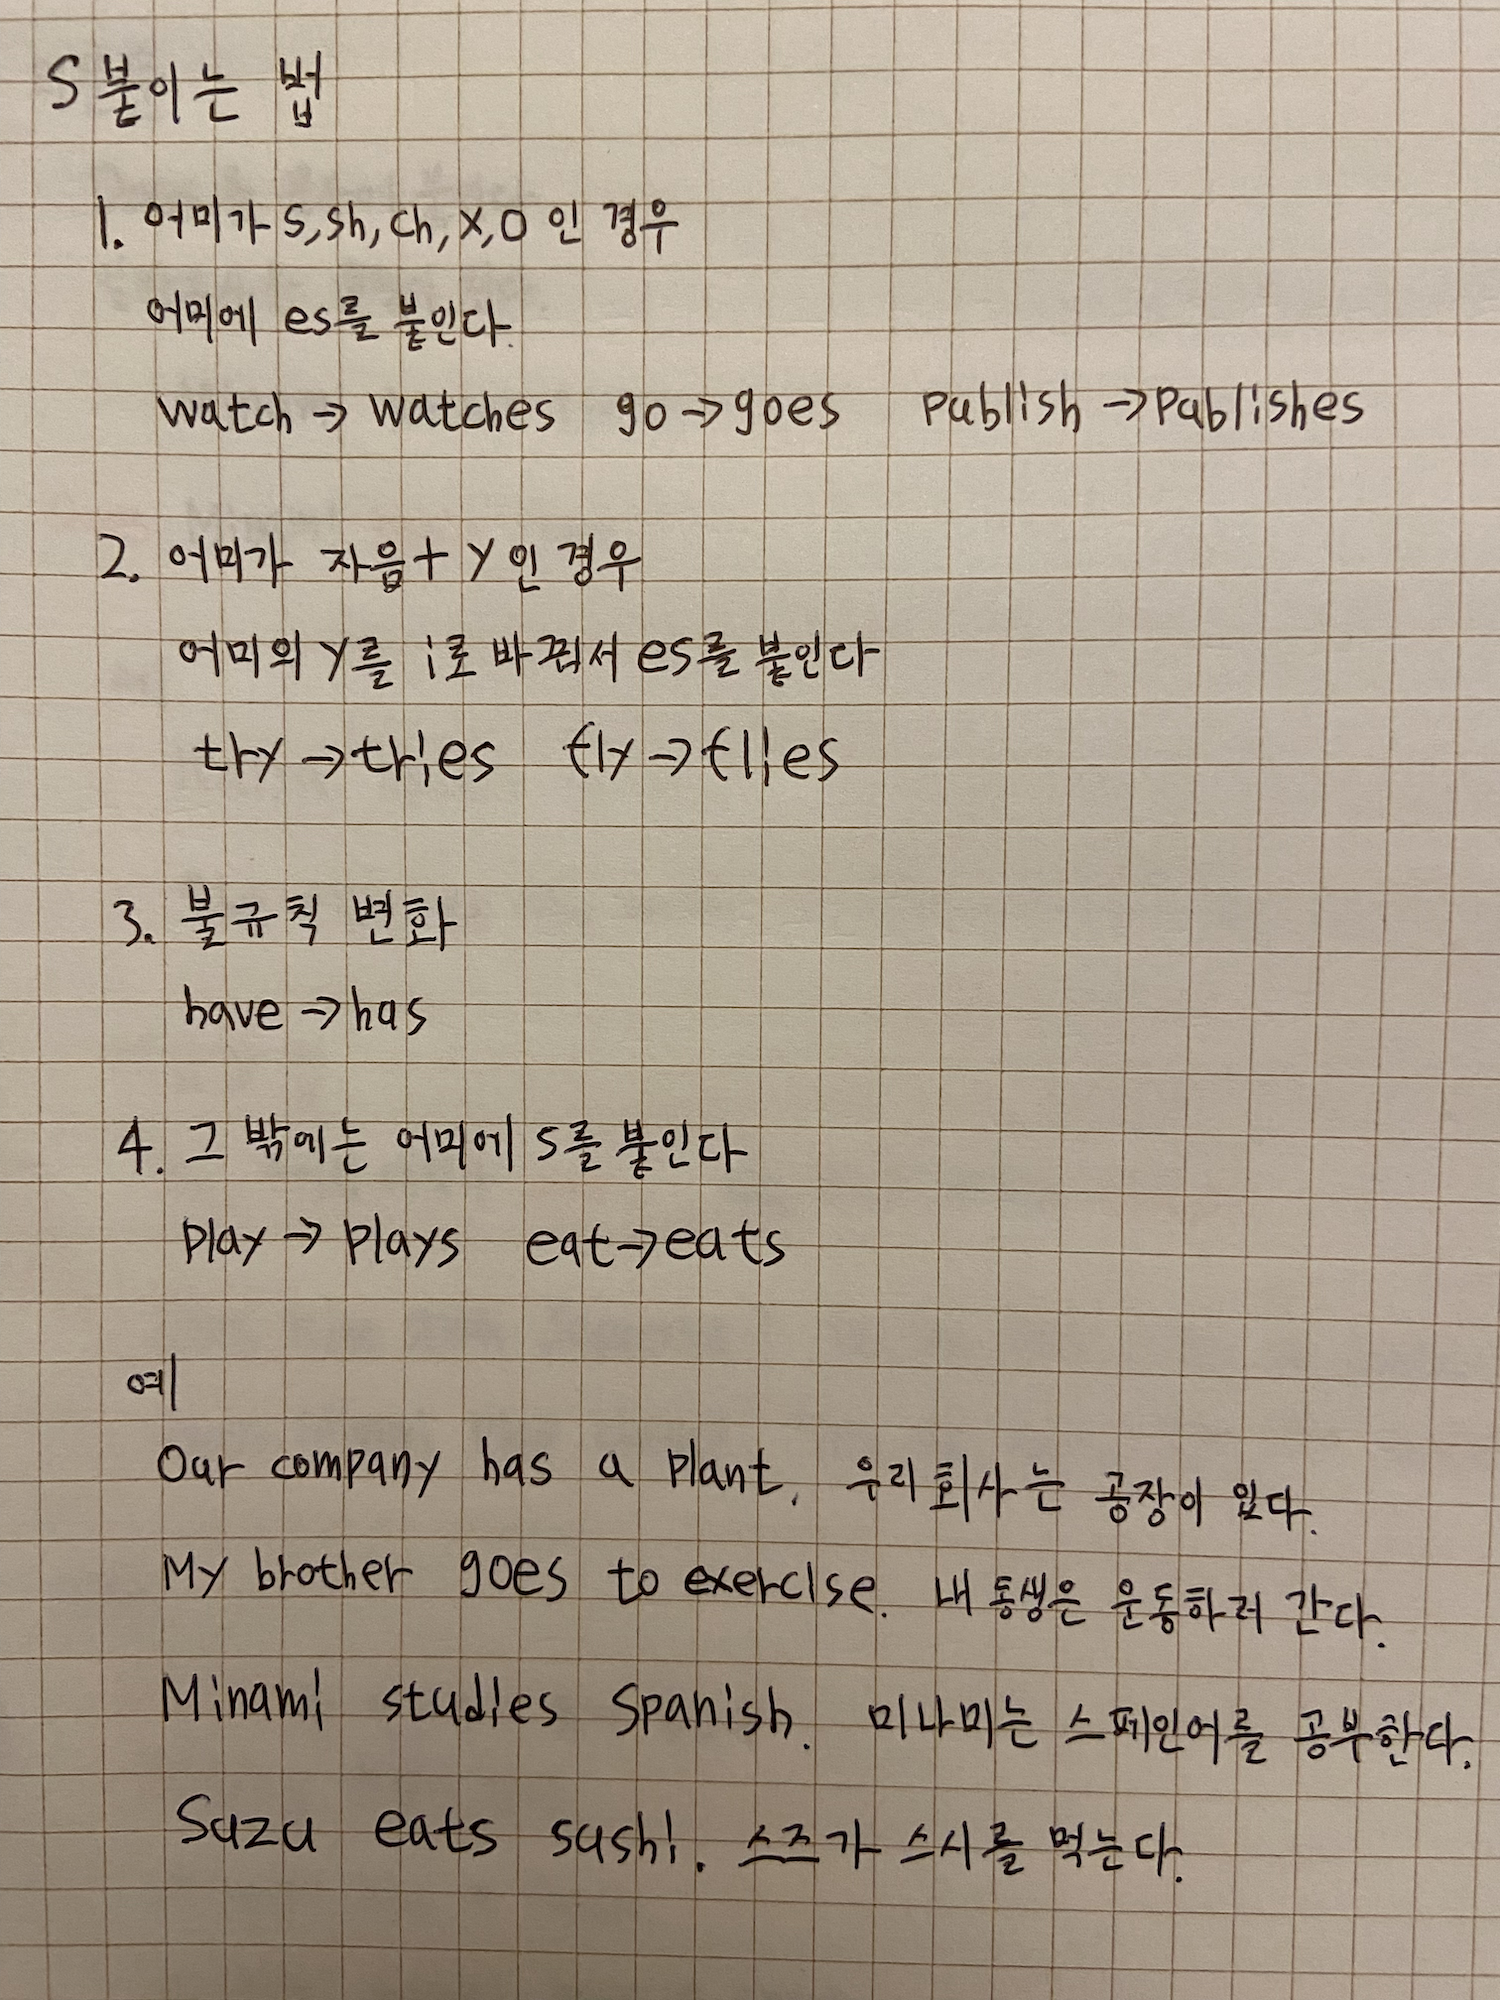 S붙이는 법
1. 어미가 s, sh, ch, x, o 인 경우
어미에 es를 붙인다.
watch → watches go → goes publish → publishes
2. 어미가 자음 + y 인 경우
어미의 y를 i로 바꿔서 es를 붙인다
try → tries fly → flies
3. 불규칙 변화
have → has
4. 그 밖에는 어미에 s를 붙인다
play → plays eat → eats
예
Our company has a plant. 우리 회사는 공장이 있다.
My brother goes to exercise. 내 동생은 운동하러 간다.
Minami studies Spanish. 미나미는 스페인어를 공부한다.
Suzu eats sushi. 스즈가 스시를 먹는다.